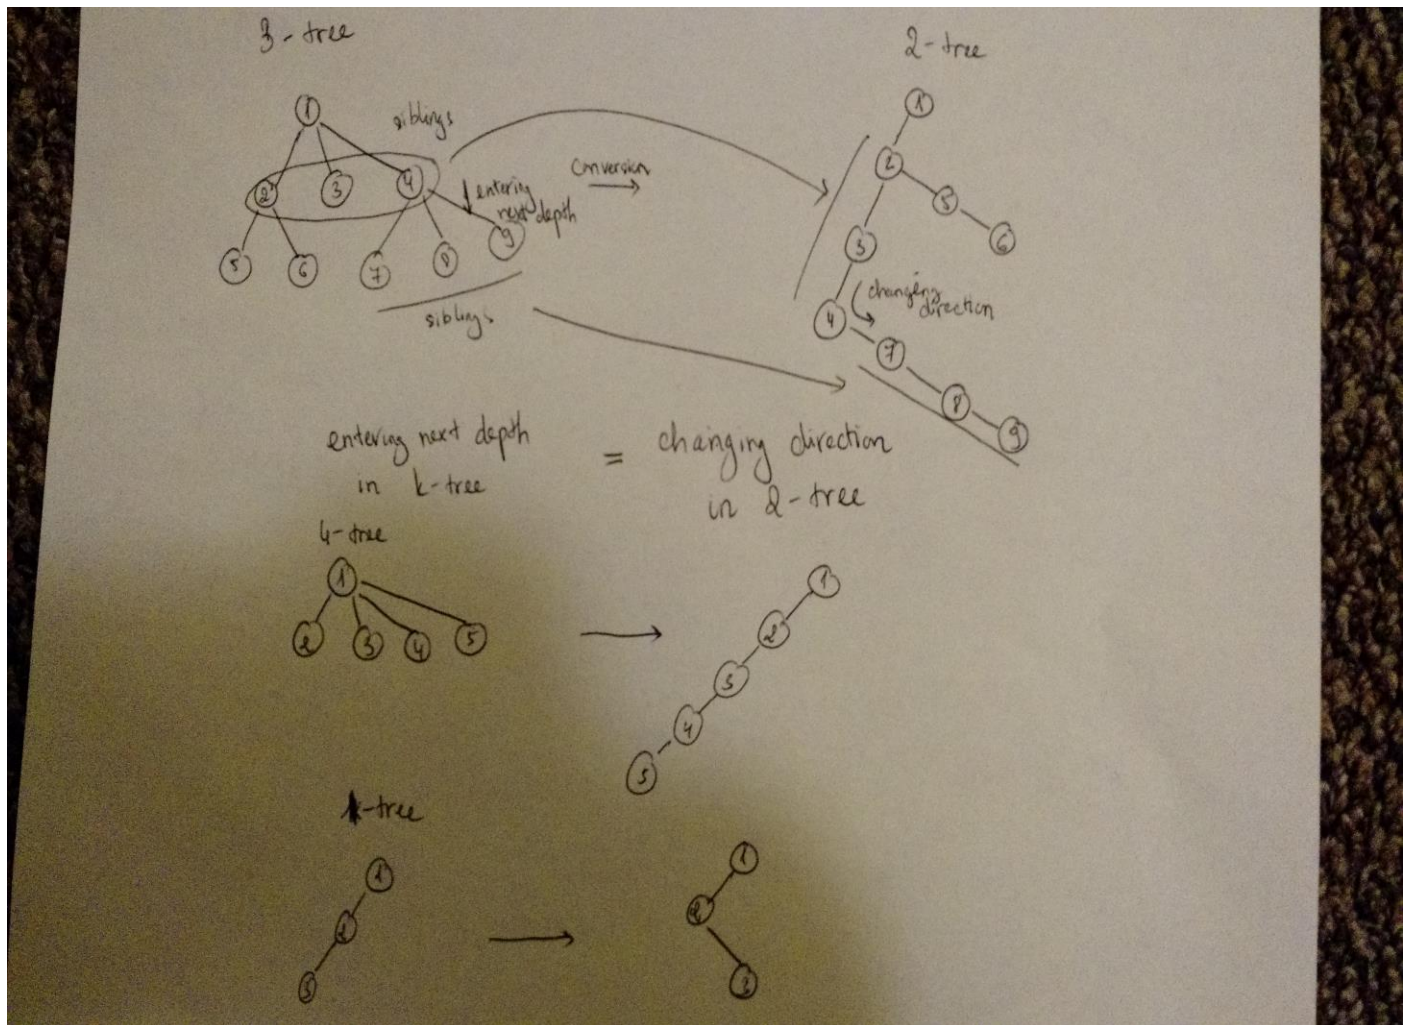 3-tree
2-tree
1
siblings
2
3
4
entering
next depth
conversion
5
6
7
8
9
siblings
1
2
5
6
3
changing
direction
4
7
8
9
entering next depth
in k-tree
=
changing direction
in 2-tree
4-tree
1
2
3
4
5
1
2
3
4
5
k-tree
1
2
3
1
2
3